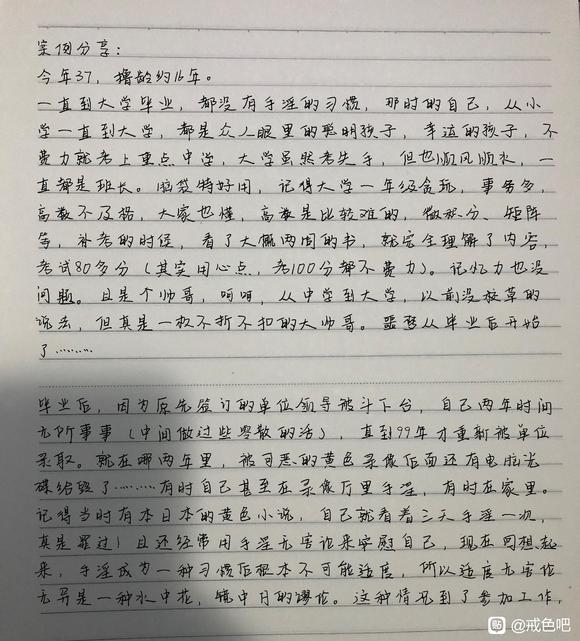 案例分享：
今年37，撸龄约16年。
一直到大学毕业，都没有手淫的习惯，那时的自己，从小
学一直到大学，都是众人眼里的聪明孩子，幸运的孩子，不
费力就考上重点中学，大学虽然考失手，但也顺风顺水，一
直都是班长。脑袋特好用，记得大学一年级贪玩，事务多，
高数不及格，大家也懂，高数是比较难的，微积分、矩阵
等，补考的时候，看了大概两周的书，就完全理解了内容，
考试80多分（其实用心点，考100分都不费力）。记忆力也没
问题。且是个帅哥，呵呵，从中学到大学，以前没校草的
说法，但真是一枚不折不扣的大帅哥。噩梦从毕业后开始
了………
毕业后，因为原先签订的单位领导被斗下台，自己两年时间
无所事事（中间做过些零散的活），直到99年才重新被单位
录取。就在哪两年里，被可恶的黄色录像后面还有电脑光
碟给毁了………有时自己甚至在录像厅里手淫，有时在家里。
记得当时有本日本的黄色小说，自己就看着三天手淫一次，
真是罪过！且还经常用手淫无害论来安慰自己，现在回想起
来，手淫成为一种习惯后根本不可能适度，所以适度无害论
无异是一种水中花，镜中月的谬论。这种情况到了参加工作，
贴 @戒色吧